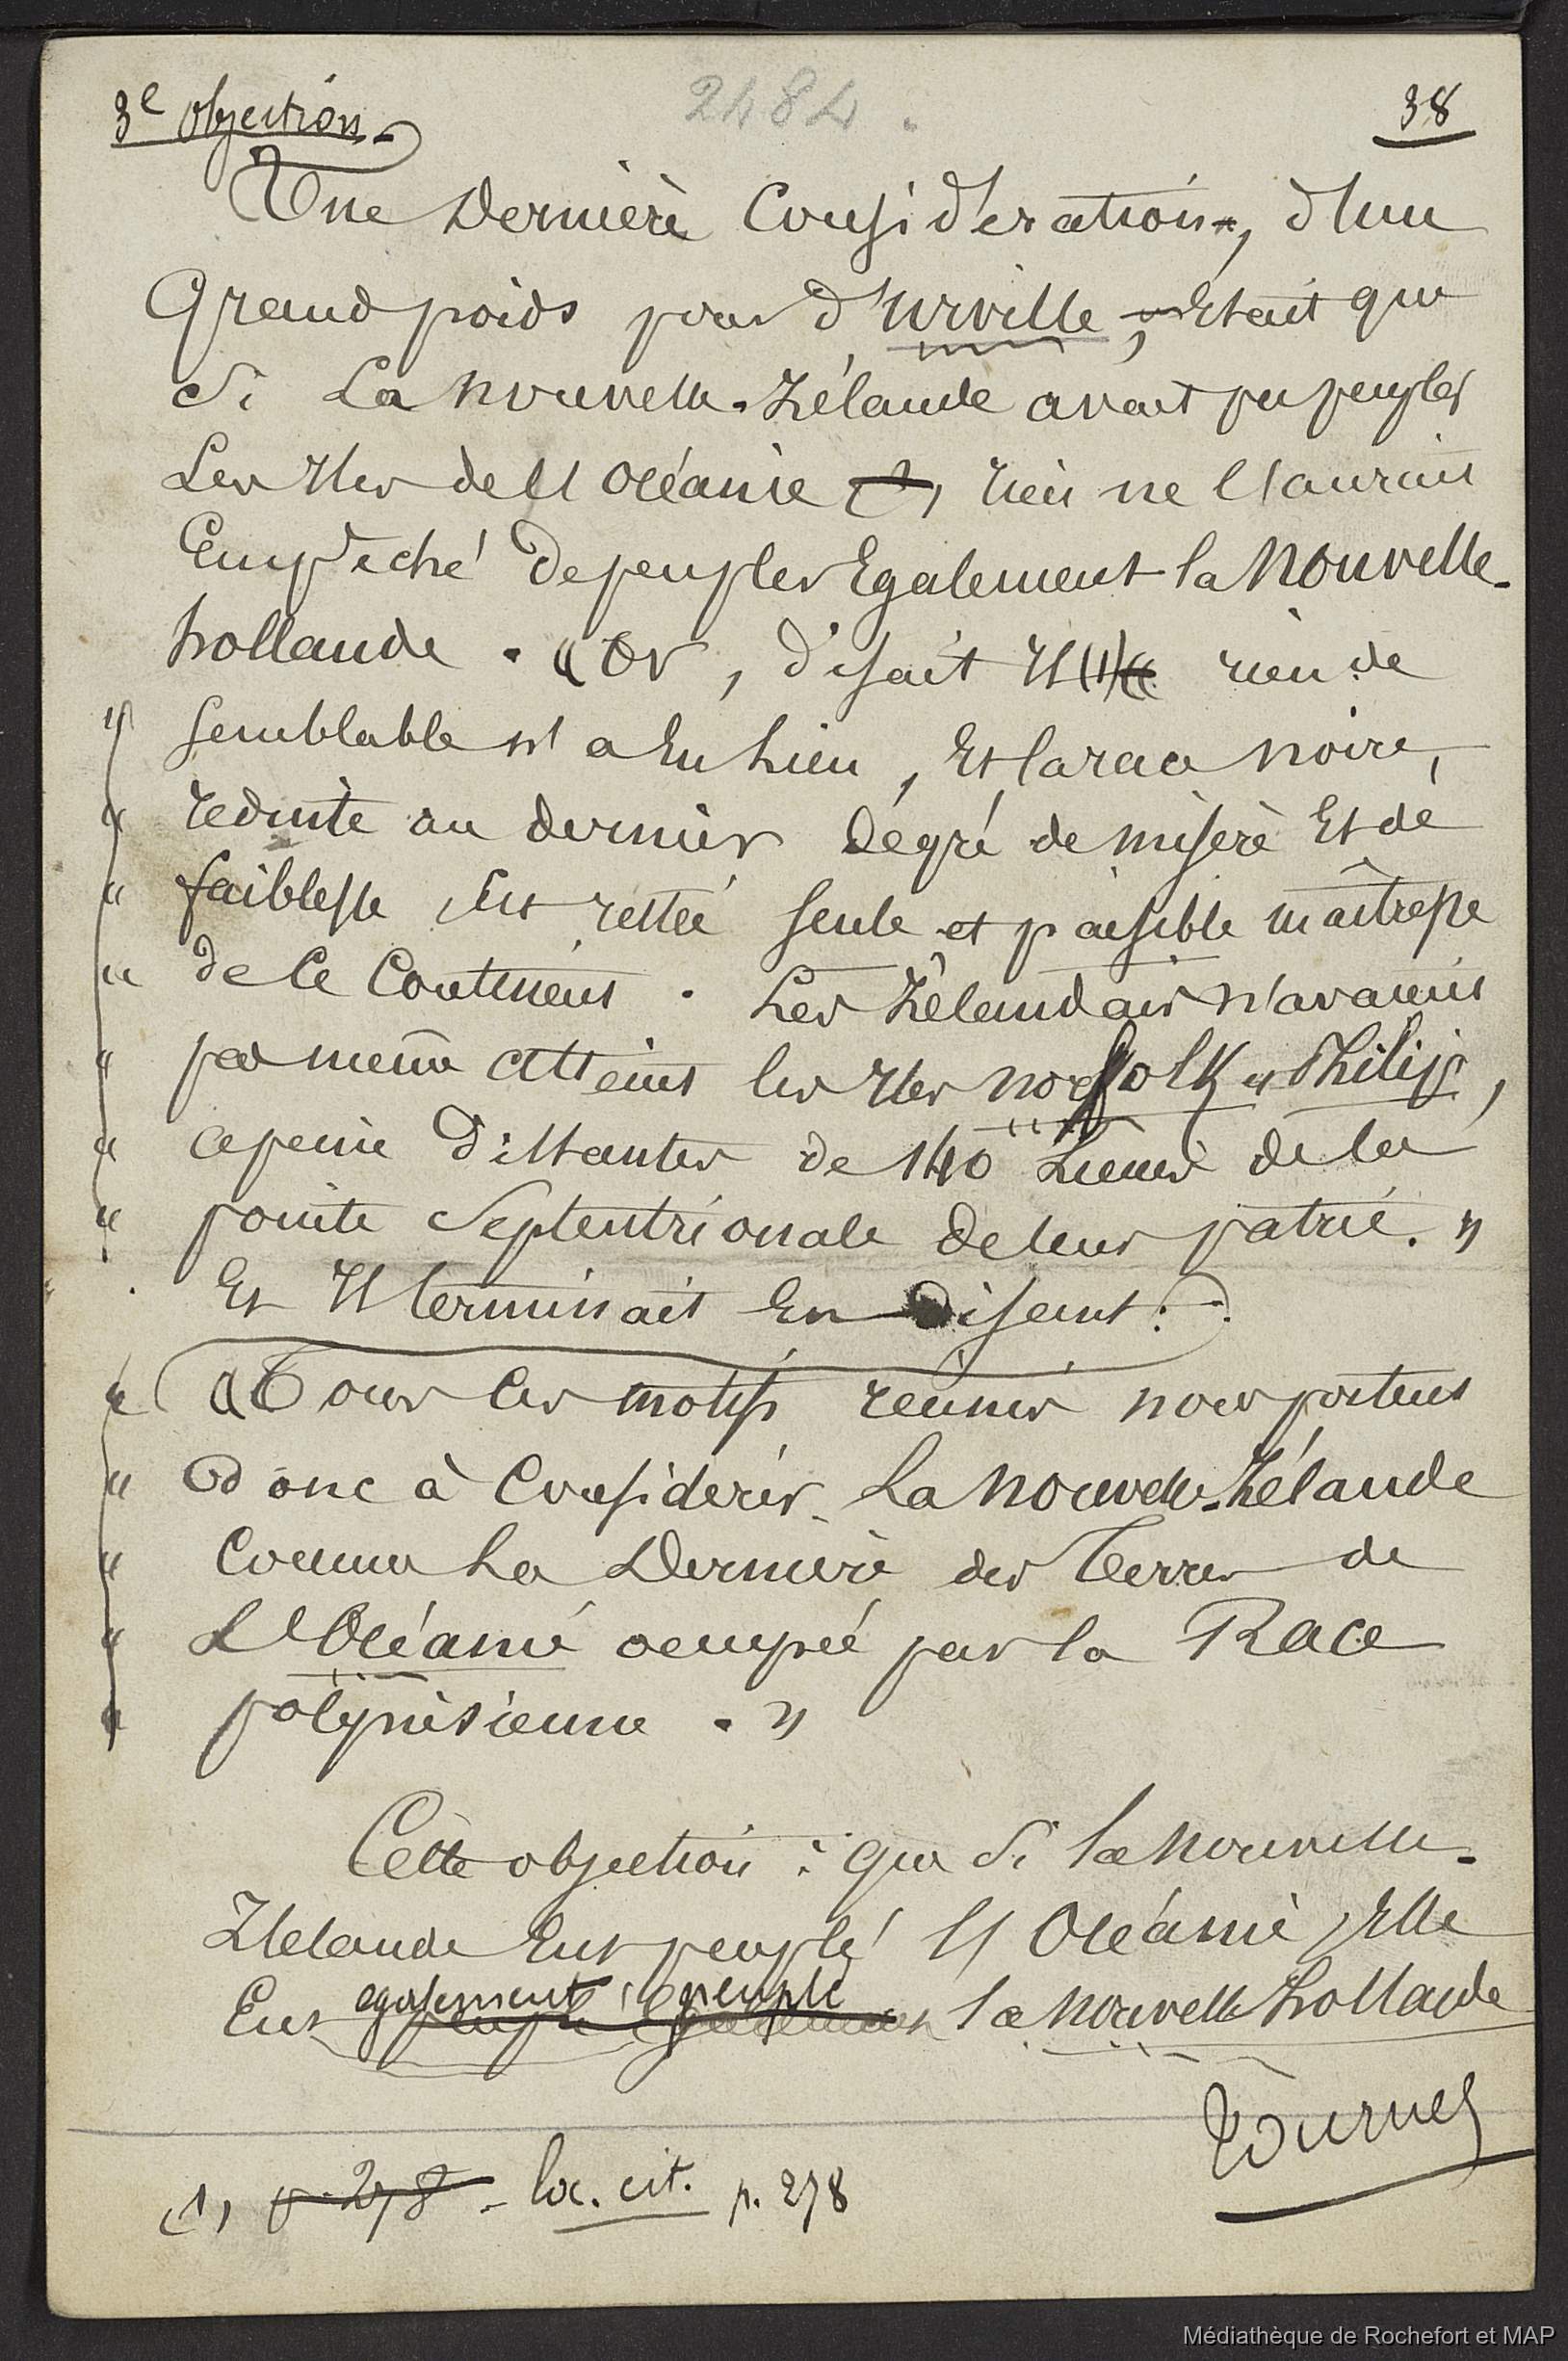 3e objection.
2484.
38
Une Dernière Considération, d'un
Grand poids pour d'Urville, Etait que
Si La Nouvelle-Zélande avait pu peupler
Les Iles de l'Océanie, rien ne l'aurait
Empêché de peupler Egalement la Nouvelle-
hollande. « Or, disait Il (1) rien de
« semblable n'a Eu Lieu, Et la race noire,
« réduite au dernier dégré de misère Et de
« faiblesse, Est restée seule et paisible maîtresse
« de Ce Continent. Les Zélandais n'avaient
« pas même atteint les Iles Norfolk & Philip,
« a peine distantes de 140 Lieues de la
« pointe Septentrionale de leur patrie. »
Et Il terminait En Disant :
« « Tous ces motifs réunis nous portent
« Donc à Considérer La Nouvelle-Zélande
« Comme La Dernière des Terres de
« L'Océanie occupée par la Race
« polynésienne. »
Cette objection : que Si la Nouvelle-
Zélande Eut peuplé l'Océanie, Elle
Eut egalement peuplé la Nouvelle hollande
Tournez
(1) p. 278 - loc. cit. p. 278
Médiathèque de Rochefort et MAP